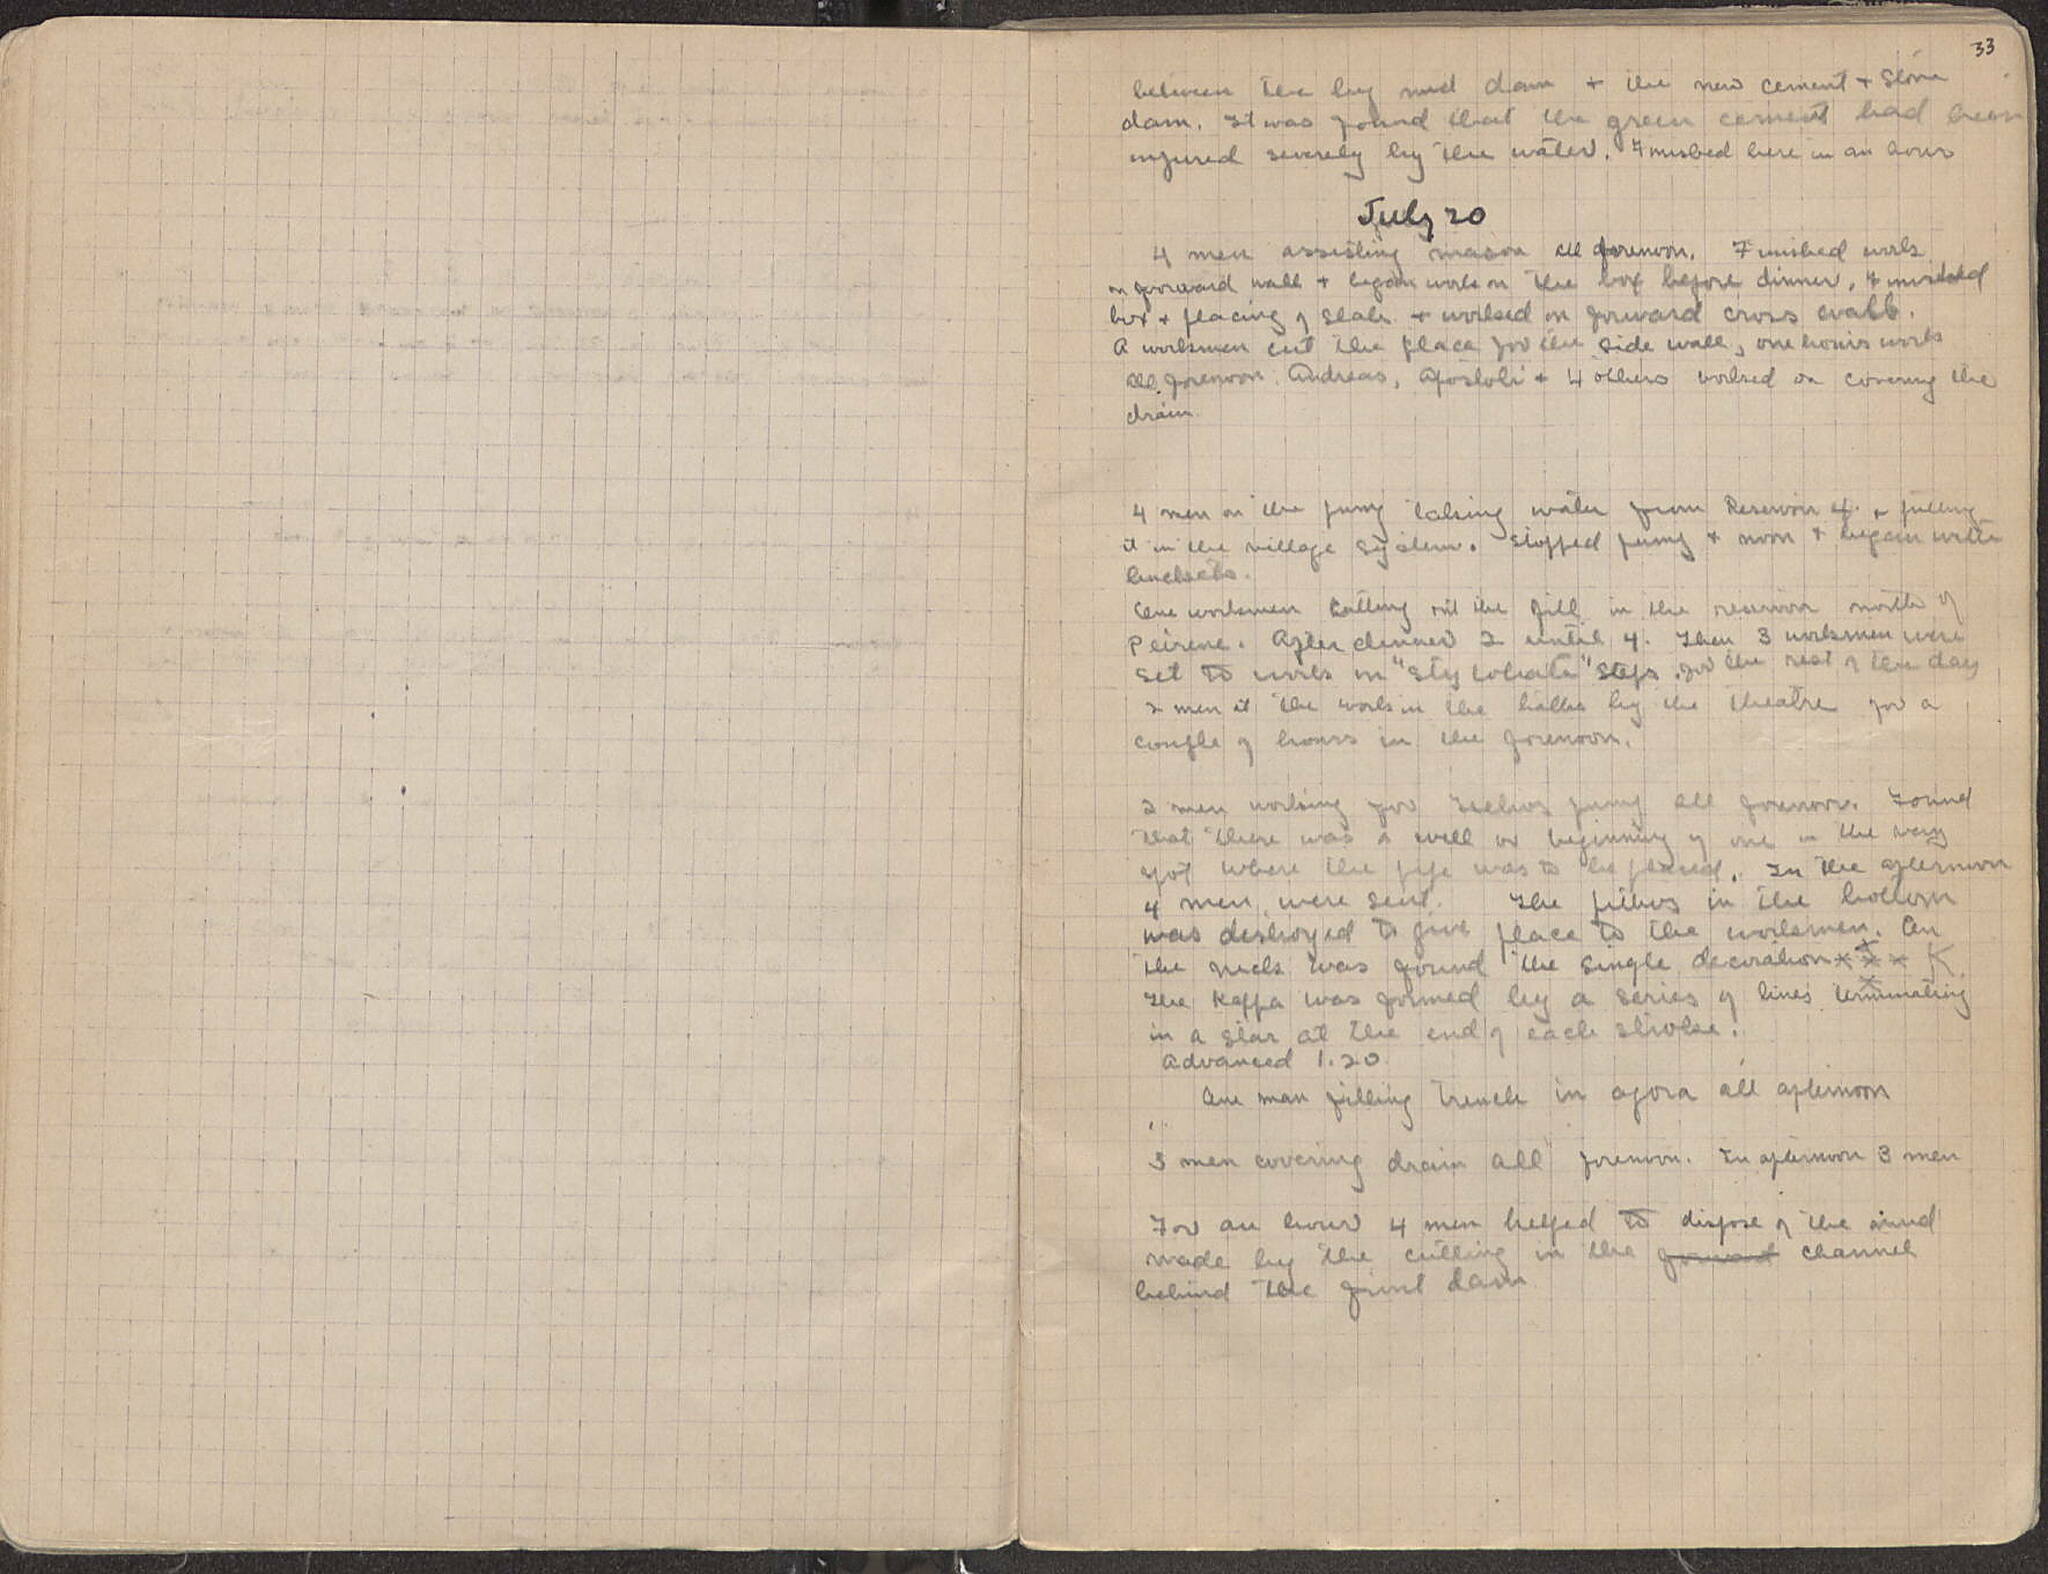 33
between the big mud dam + the new cement + stone
dam. It was found that the green cement had been
injured severely by the water. Finished here in an hour
July 20
4 men assisting mason all forenoon. Finished work
on forward wall + began work on the box before dinner. Finished
box + placing of slabs + worked on forward cross wall.
A workman cut the place for the side wall, one hours work
all forenoon. Andreas, Apostoli + 4 others worked on covering the
drain.
4 men on the pump taking water from Reservoir 4 + putting
it in the village system. Stopped pump + noon + began with
buckets.
One workman cutting out the fill in the reservoir north of
Peirene. After dinner 2 until 4. Then 3 workmen were
set to work on "stylobate" steps for the rest of the day
2 men at the work in the baths by the theatre for a
couple of hours in the forenoon.
2 men working for pump all forenoon. Found
that there was a well or beginning of one in the very
spot where the pipe was to be placed. In the afternoon
4 men were sent. The pithos in the bottom
was destroyed to give place to the workmen. On
the neck was found the single decoration K
The Kappa was formed by a series of lines terminating
in a star at the end of each stroke.
Advanced 1.20
One man filling trench in agora all afternoon
3 men covering drain all forenoon. In afternoon 3 men
For an hour 4 men helped to dispose of the mud
made by the cutting in the forward channel
behind the front dam